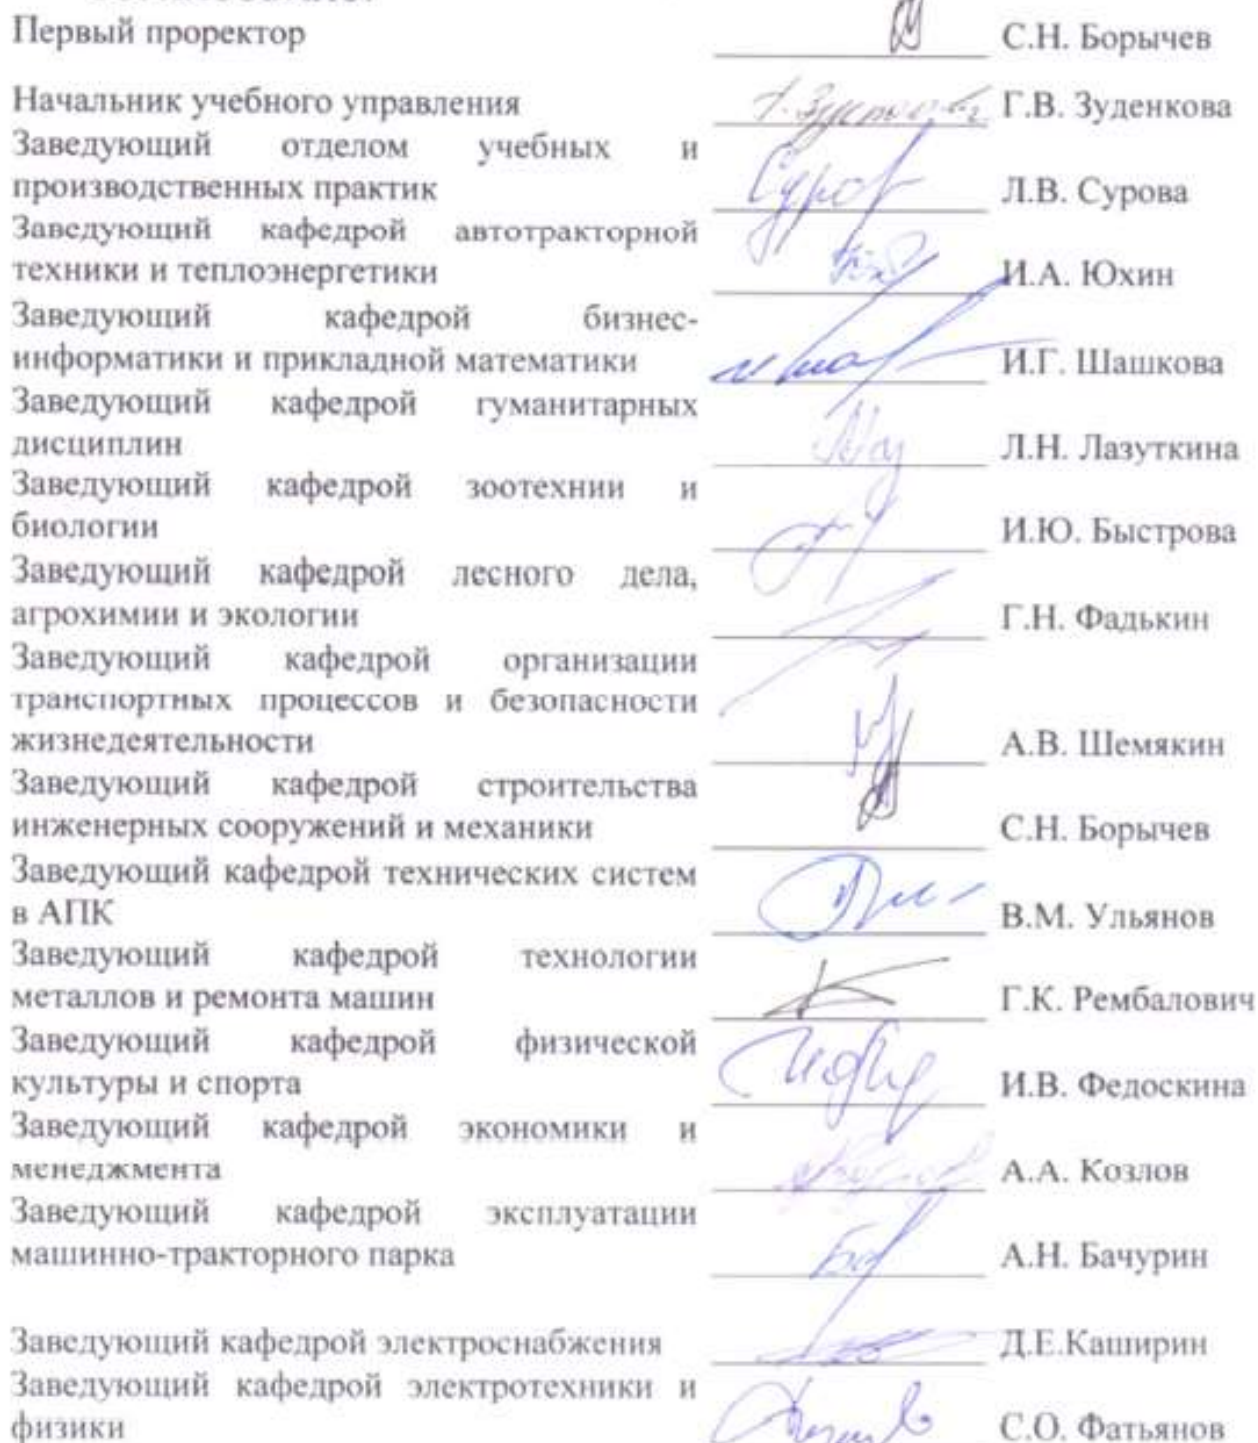 Первый проректор С.Н. Борычев
Начальник учебного управления Г.В. Зуденкова
Заведующий отделом учебных и
производственных практик Л.В. Сурова
Заведующий кафедрой автотракторной
техники и теплоэнергетики И.А. Юхин
Заведующий кафедрой бизнес-
информатики и прикладной математики И.Г. Шашкова
Заведующий кафедрой гуманитарных
дисциплин Л.Н. Лазуткина
Заведующий кафедрой зоотехнии и
биологии И.Ю. Быстрова
Заведующий кафедрой лесного дела,
агрохимии и экологии Г.Н. Фадькин
Заведующий кафедрой организации
транспортных процессов и безопасности
жизнедеятельности А.В. Шемякин
Заведующий кафедрой строительства
инженерных сооружений и механики С.Н. Борычев
Заведующий кафедрой технических систем
в АПК В.М. Ульянов
Заведующий кафедрой технологии
металлов и ремонта машин Г.К. Рембалович
Заведующий кафедрой физической
культуры и спорта И.В. Федоскина
Заведующий кафедрой экономики и
менеджмента А.А. Козлов
Заведующий кафедрой эксплуатации
машинно-тракторного парка А.Н. Бачурин
Заведующий кафедрой электроснабжения Д.Е.Каширин
Заведующий кафедрой электротехники и
физики С.О. Фатьянов